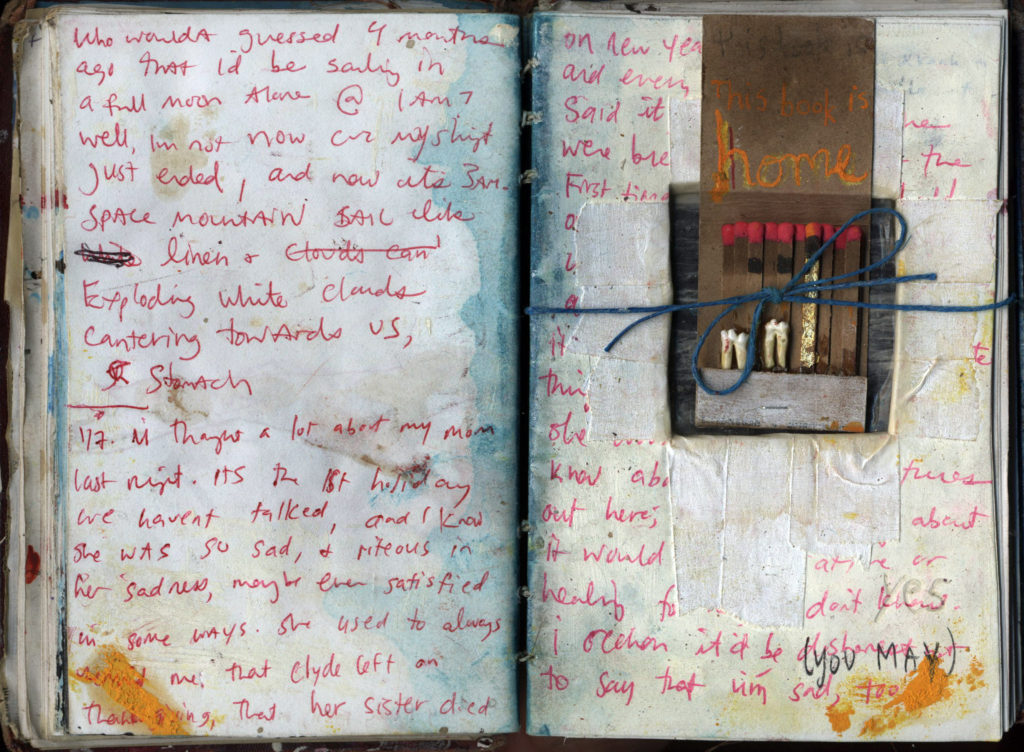 Who would guessed 4 months
ago that i'd be sailing in
a full moon alone @ 1 AM?
well, im not now cuz my shift
just ended, and now its 3AM.
SPACE MOUNTAIN SAIL
linen & clouds can
Exploding white clouds
cantering towards US,
Stomach
1/7. I thought a lot about my mom
last night. ITS the 1st holiday
we havent talked, and I know
she WAS so sad, & riteous in
her sadness, maybe even satisfied
in some ways. she used to always
remind me, that Clyde left on
thanksgiving, that her sister died
on new yea
and even
Said it
were bre the
First time
it te
thi
she
know abo tures
out here, about
it would ative or
healing fo don't know.
i reckon it'd be dishonest not
to say that i'm sad, too
This book is
home
yes
(you MAY)